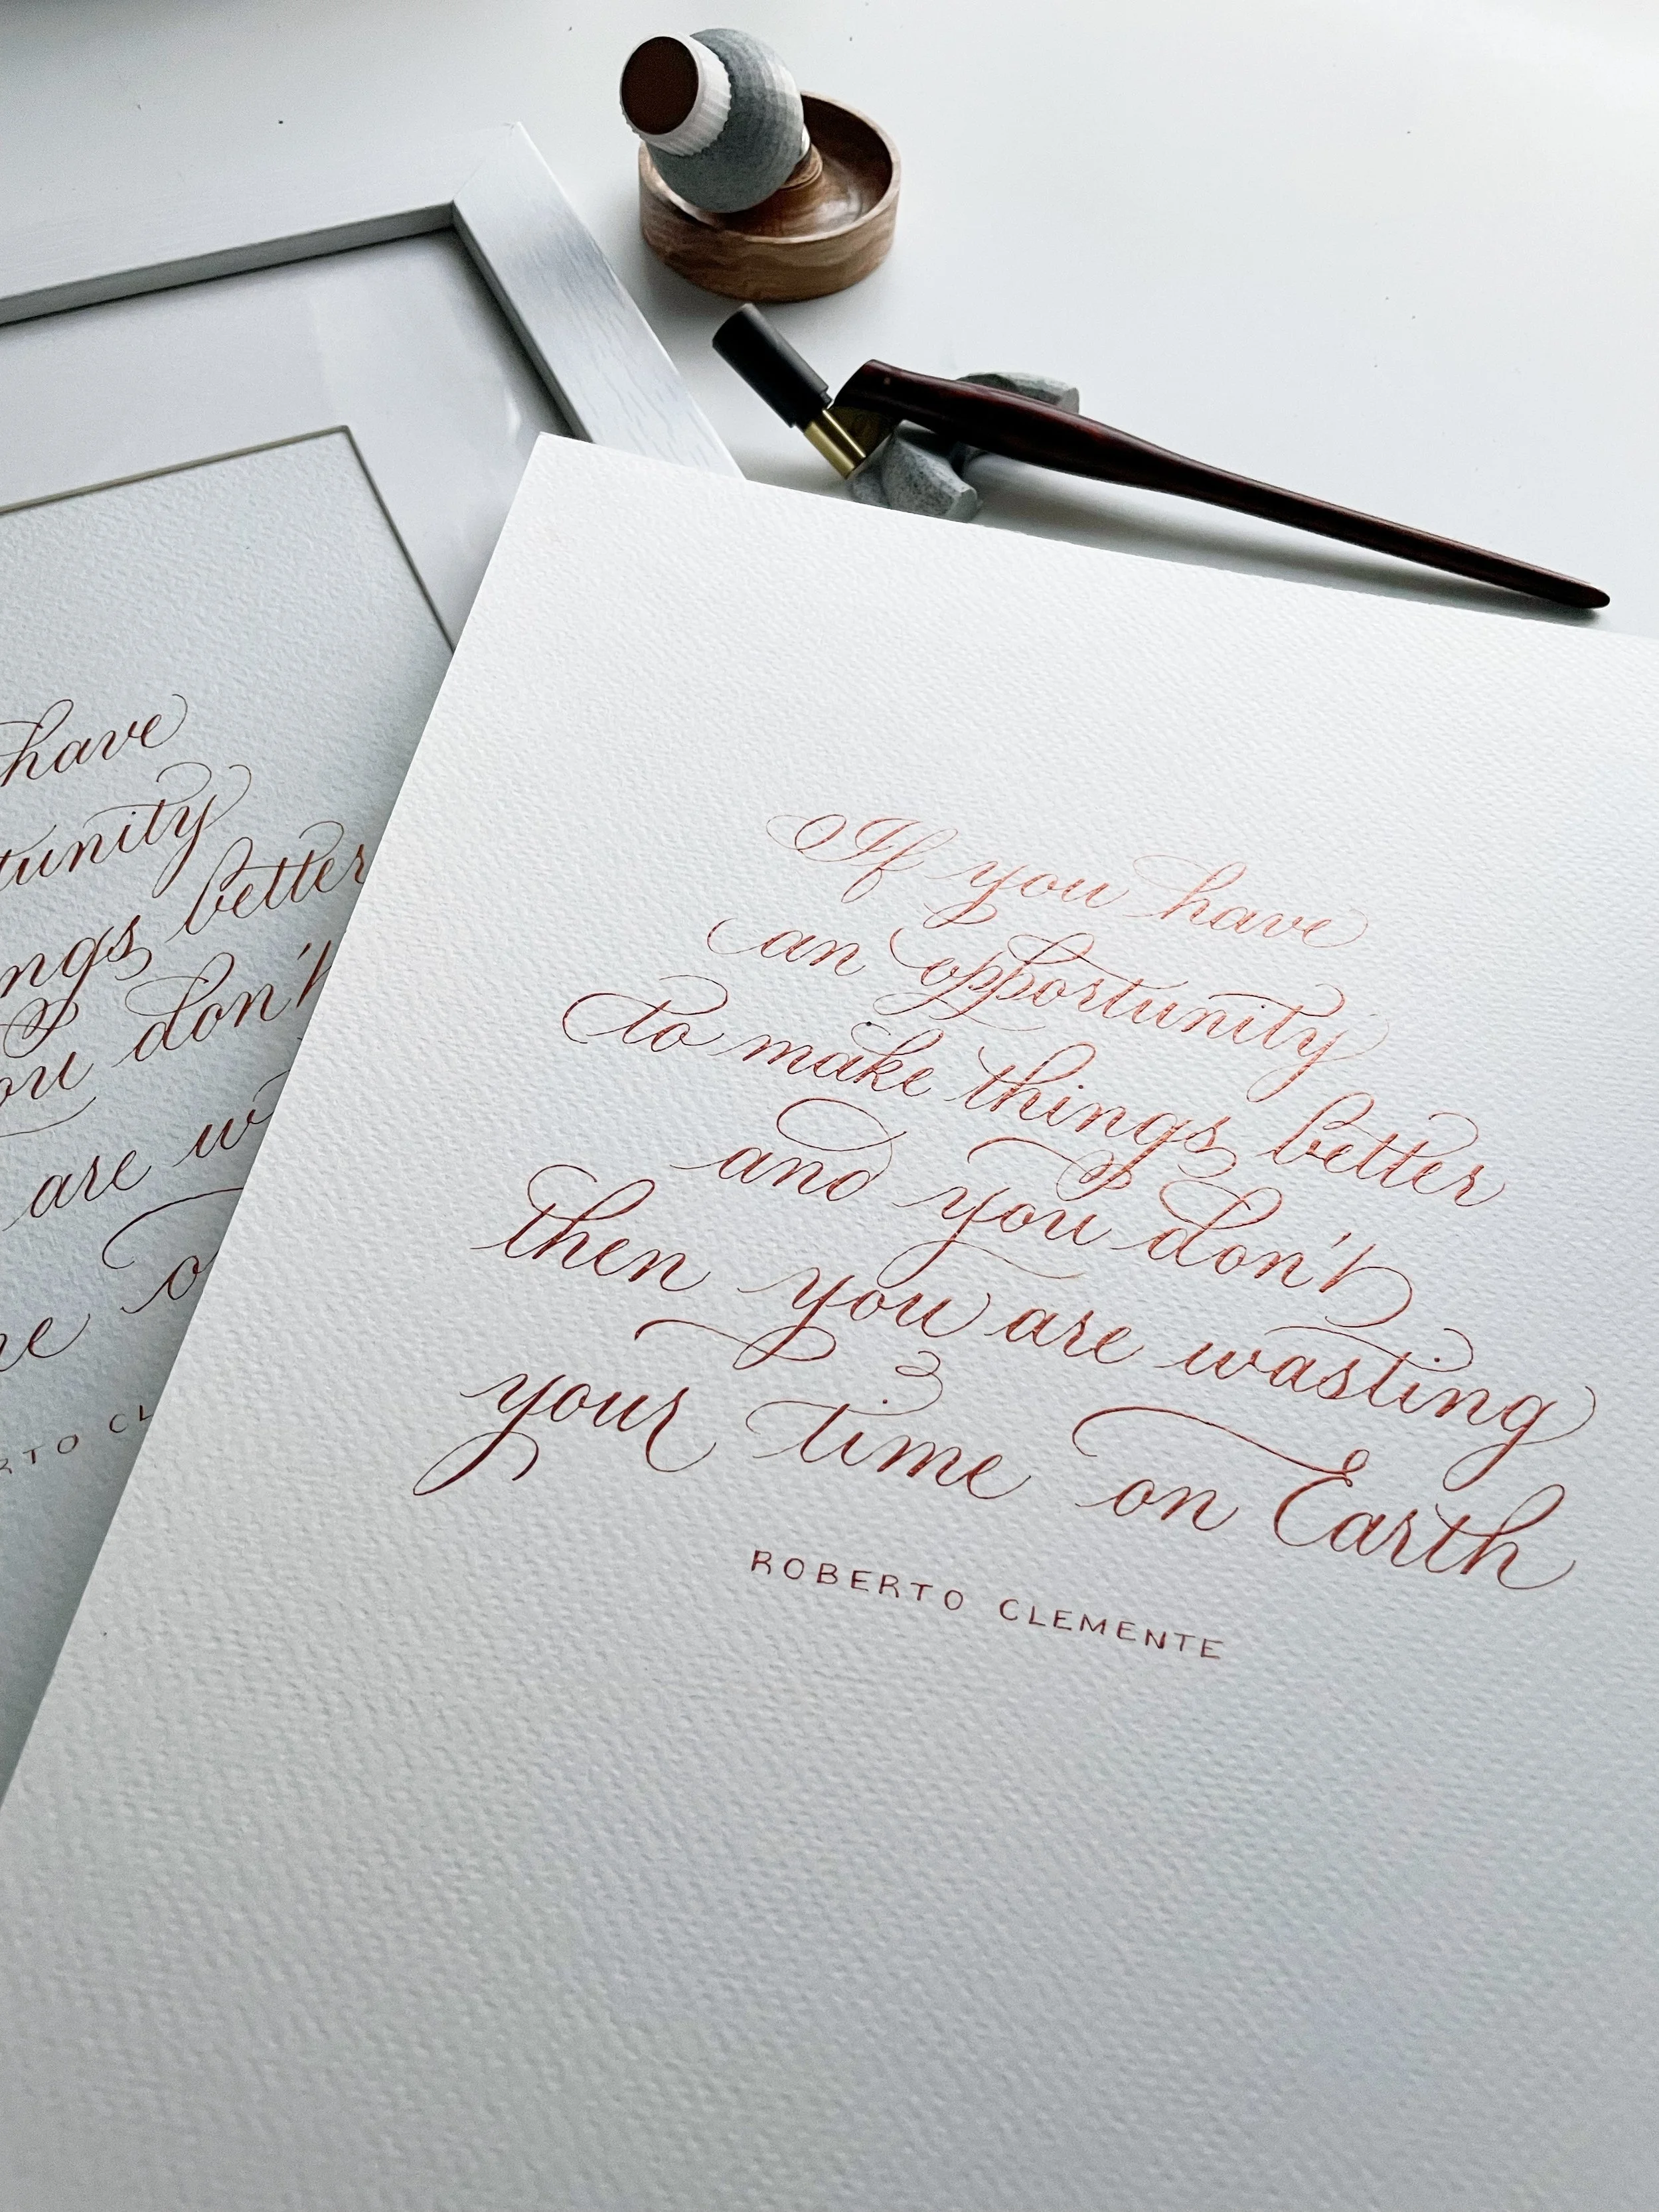 If you have
an opportunity
to make things better
and you don't
then you are wasting
your time on Earth
ROBERTO CLEMENTE
have
tunity
ngs better
ou don't
are w
o
ne
RTO CL